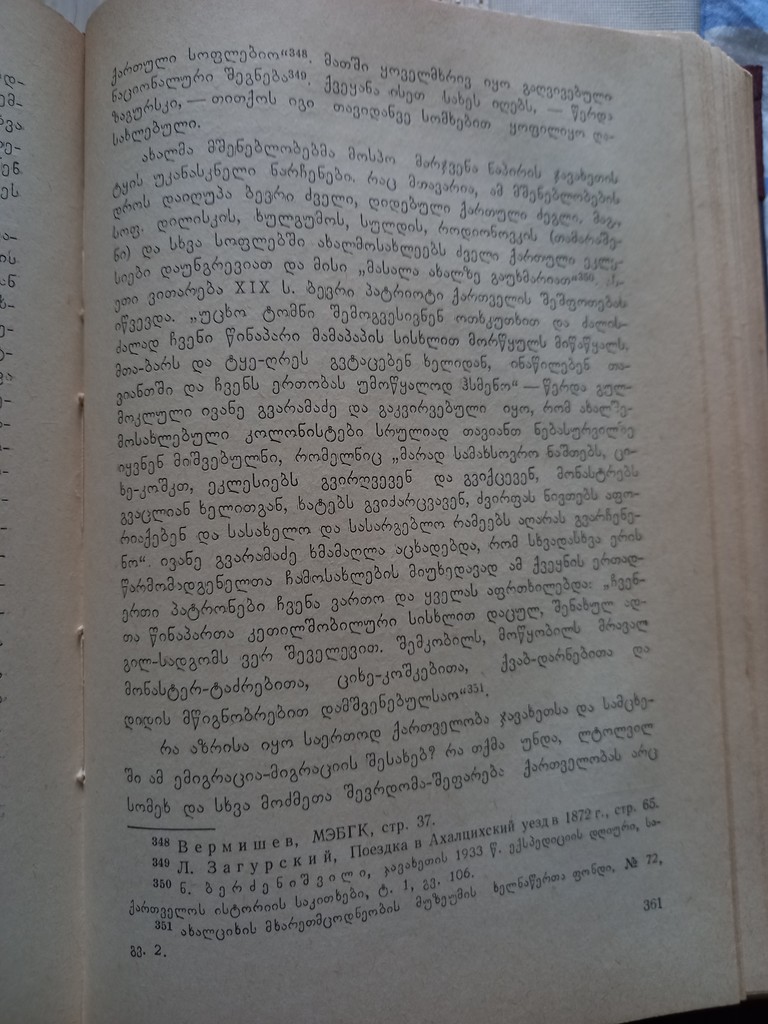 ქართული სოფლებიო“³⁴⁸. მათში ყოველმხრივ იყო გაღვივებული
ნაციონალური შეგნება³⁴⁹. ქვეყანა ისეთ სახეს იღებს, — წერდა
ზაგურსკი, — თითქოს იგი თავიდანვე სომხებით ყოფილიყო და-
სახლებული.
ახალმა მშენებლობებმა მოსპო მარჯვენა ნაპირის ჯავახეთის
ტყის უკანასკნელი ნარჩენები. რაც მთავარია, ამ მშენებლობების
დროს დაიღუპა ბევრი ძველი, დიდებული ქართული ძეგლი. მაგ.
სოფ. დილისკის, ხულგუმოს, სულდის, როდიონოვკის (თამარაშე-
ნი) და სხვა სოფლებში ახალმოსახლეებს ძველი ქართული ეკლე-
სიები დაუნგრევიათ და მისი „მასალა ახალზე გაუხმარიათ“³⁵⁰.
ეთი ვითარება XIX ს. ბევრი პატრიოტი ქართველის შეშფოთებას
იწვევდა. „უცხო ტომნი შემოგვესივნენ ოთხკუთხით და ძალის-
ძალად ჩვენი წინაპარი მამაპაპის სისხლით მორწყულს მიწაწყალს,
მთა-ბარს და ტყე-ღრეს გვტაცებენ ხელიდან, ინაწილებენ თა-
ვიანთში და ჩვენს ერთობას უმოწყალოდ ჰსმენო“ — წერდა გულ-
მოკლული ივანე გვარამაძე და გაკვირვებული იყო, რომ ახალშე-
მოსახლებული კოლონისტები სრულიად თავიანთ ნებასურვილზე
იყვნენ მიშვებულნი, რომელნიც „მარად სამახსოვრო ნაშთებს, ცი-
ხე-კოშკთ, ეკლესიებს გვირღვევენ და გვიქცევენ, მონასტრებს
გვაცლიან ხელითგან, ხატებს გვიძარცვავენ, ძვირფას ნივთებს აფო-
რიაქებენ და სასახელო და სასარგებლო რამეებს აღარას გვარჩენე-
ნო“. ივანე გვარამაძე ხმამაღლა აცხადებდა, რომ სხვადასხვა ერის
წარმომადგენელთა ჩამოსახლების მიუხედავად ამ ქვეყნის ერთად-
ერთი პატრონები ჩვენა ვართო და ყველას აფრთხილებდა: „ჩვენ-
თა წინაპართა კეთილშობილური სისხლით დაცულ, შენახულ ად-
გილ-სადგომს ვერ შეველევით. შემკობილს, მოწყობილს მრავალ
მონასტერ-ტაძრებითა, ციხე-კოშკებითა, ქვაბ-დარნებითა და
დიდის მწიგნობრებით დამშვენებულსაო“³⁵¹.
რა აზრისა იყო საერთოდ ქართველობა ჯავახეთსა და სამცხე-
ში ამ ემიგრაცია-მიგრაციის შესახებ? რა თქმა უნდა, ლტოლვილ
სომეხ და სხვა მოძმეთა შევრდომა-შეფარება ქართველობას არც
³⁴⁸ Вермишев, МЭБГК, стр. 37.
³⁴⁹ Л. Загурский, Поездка в Ахалцихский уезд в 1872 г., стр. 65.
³⁵⁰ ნ. ბერძენიშვილი, ჯავახეთის 1933 წ. ექსპედიციის დღიური, სა-
ქართველოს ისტორიის საკითხები, ტ. 1, გვ. 106.
³⁵¹ ახალციხის მხარეთმცოდნეობის მუზეუმის ხელნაწერთა ფონდი, № 72,
გვ. 2.
361